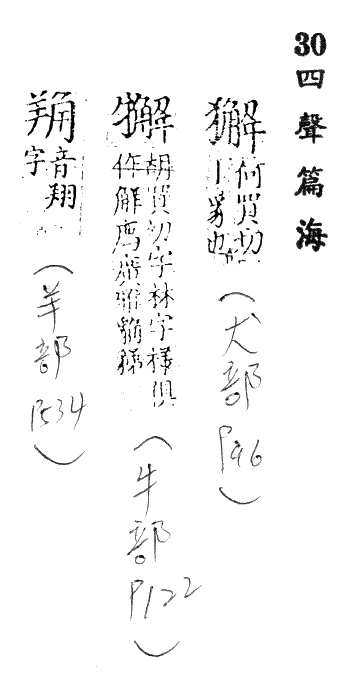 30四聲篇海
獬何買切
豸也
(犬部
P46)
𤛇胡買切字林字樣俱
作解廌
(牛部
P122)
音翔
字
(羊部
P534)